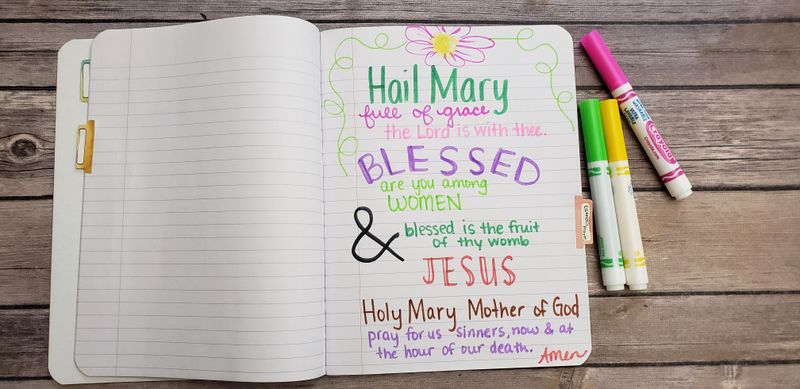 Hail Mary
full of grace
the Lord is with thee.
BLESSED
are you among
WOMEN
&
blessed is the fruit
of thy womb
JESUS
Holy Mary Mother of God
pray for us sinners, now & at
the hour of our death.
Amen
Crayola